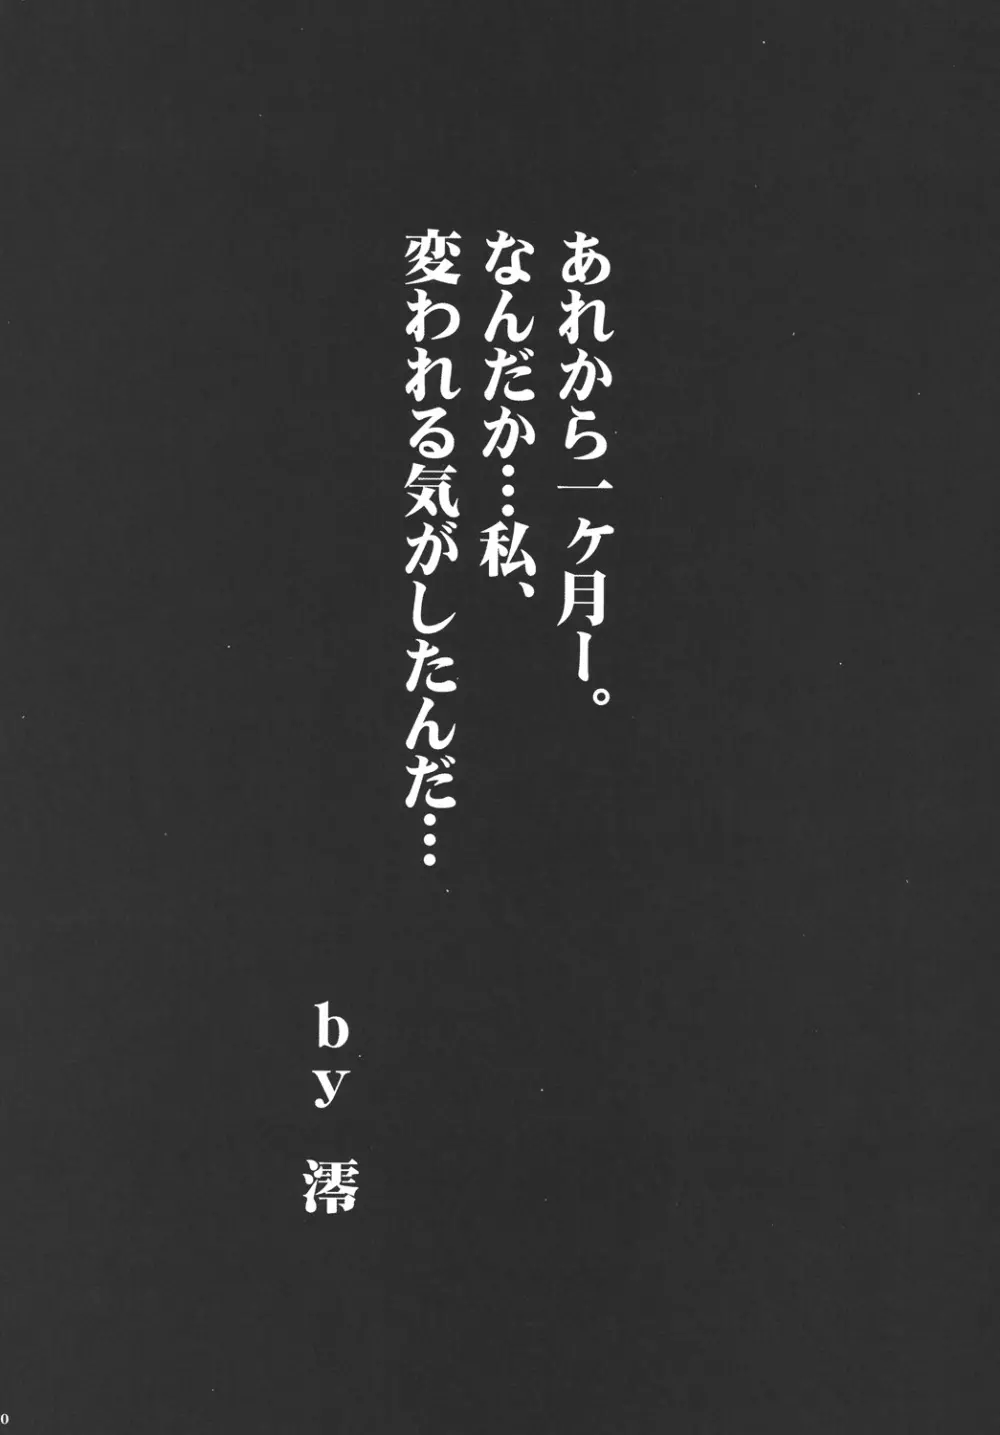 あれから一ヶ月ー。
なんだか…私、
変われる気がしたんだ…
by 澪
0